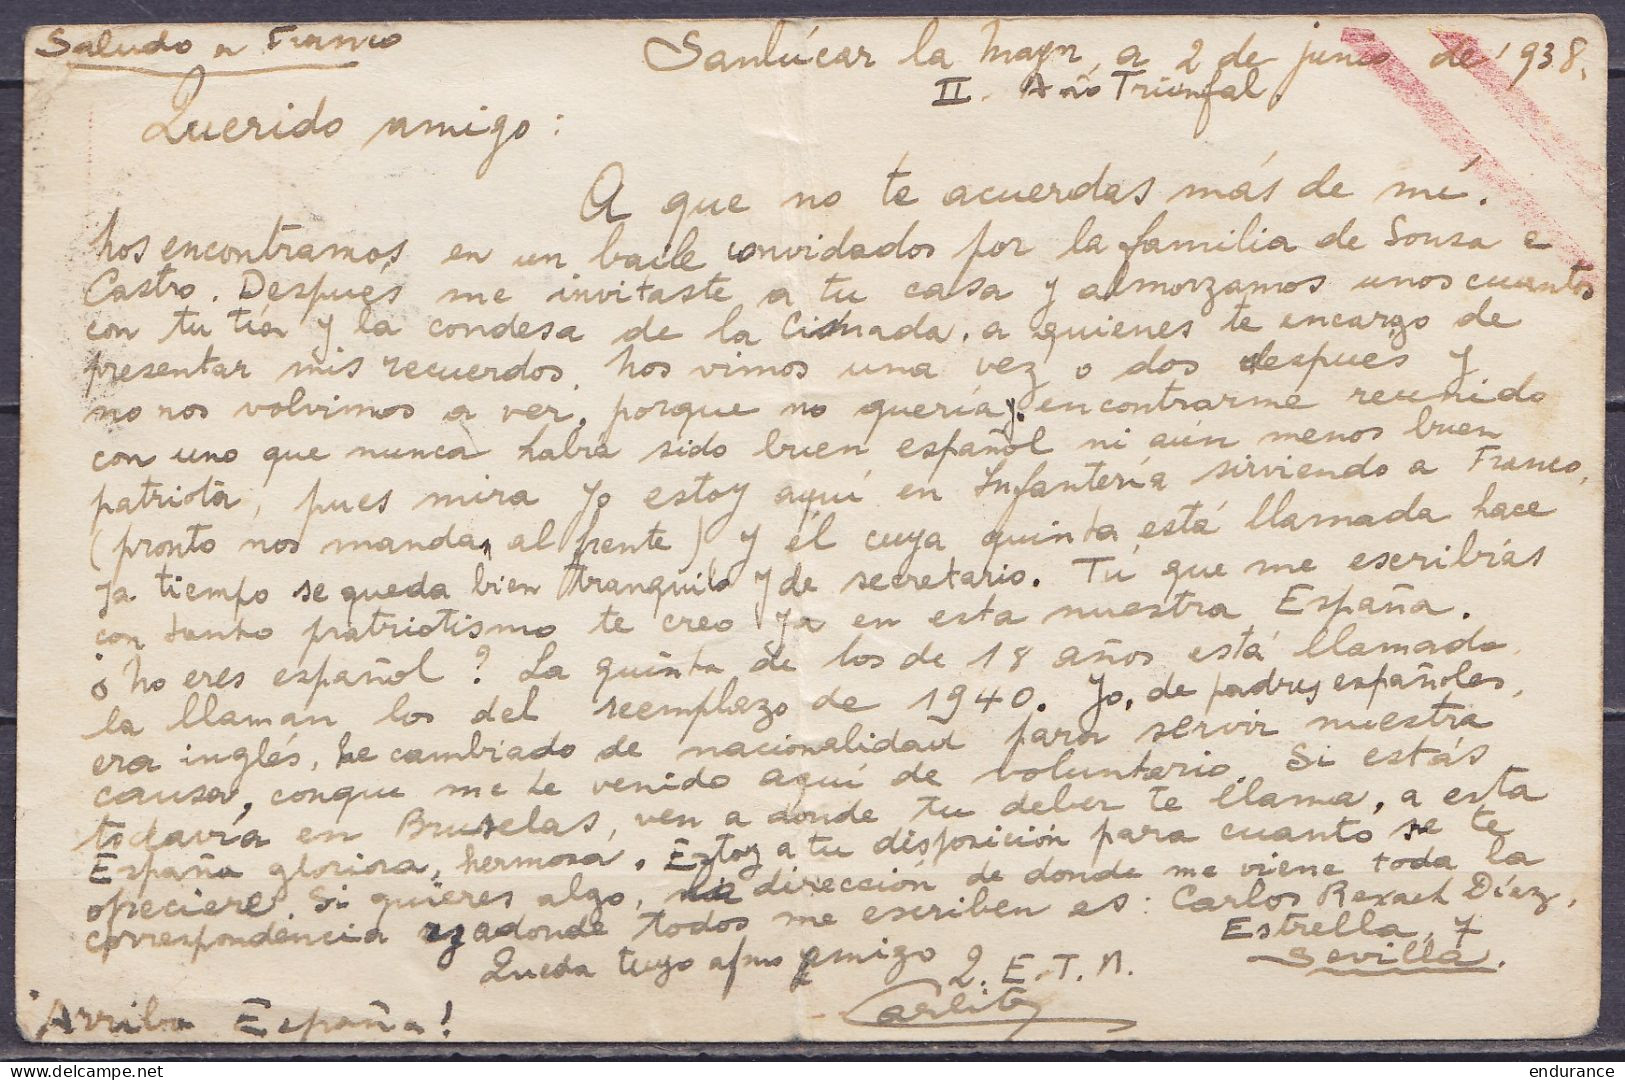 Saludo a Franco
Sanlúcar la Mayr, a 2 de junio de 1938.
II. Año Triunfal.
Querido amigo:
A que no te acuerdas más de mí.
Nos encontramos en un baile convidados por la familia de Sousa e
Castro. Después me invitaste a tu casa y almorzamos unos cuantos
con tu tía y la condesa de la a quienes te encargo de
presentar mis recuerdos. Nos vimos una vez o dos despues y
no nos volvimos a ver, porque no quería encontrarme reunido
con uno que nunca habrá sido buen español ni aún menos buen
patriota, pues mira yo estoy aquí en Infantería sirviendo a Franco,
(pronto nos mandan al frente) y él cuya quinta está llamada hace
ya tiempo se queda bien tranquilo y de secretario. Tú que me escribías
con tanto patriotismo te creo ya en esta nuestra España.
¿No eres español? La quinta de los de 18 años está llamada,
la llaman los del reemplazo de 1940. Yo, de padres españoles,
era inglés, he cambiado de nacionalidad para servir nuestra
causa, conque me he venido aquí de voluntario. Si estás
todavía en Bruselas, ven a donde tu deber te llama, a esta
España gloriosa, hermosa. Estoy a tu disposición para cuanto se te
ofreciere. Si quieres algo, la dirección de donde me viene toda la
correspondencia y adonde todos me escriben es: Carlos Rexach Díez,
Estrella, 7
Sevilla.
Queda tuyo afmo amigo Q. E. T. A.
Carlitos
¡Arriba España!
endurance